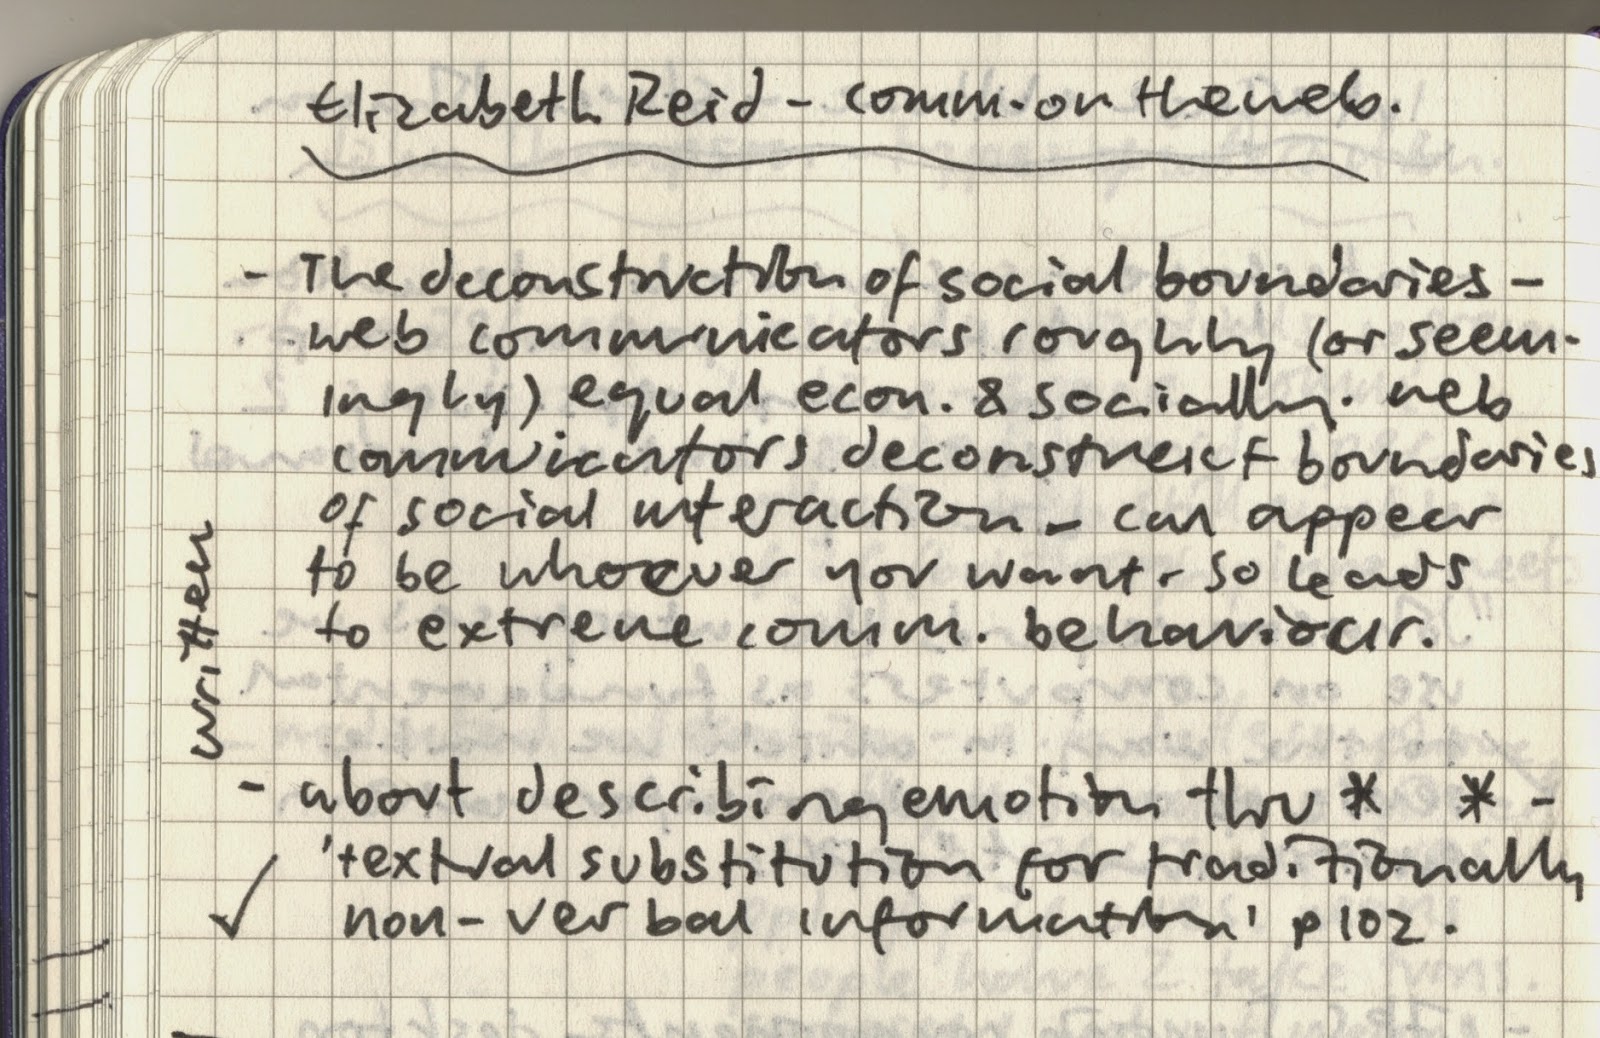 Elizabeth Reid - comm. on the web.
- The deconstruction of social boundaries -
web communicators roughly (or seem-
ingly) equal econ. & socially. web
communicators deconstruct boundaries
of social interaction - can appear
to be whoever you want - so leads
to extreme comm. behaviour.
written
- about describing emotion thru * * -
'textual substitution for traditionally
non-verbal information' p102.